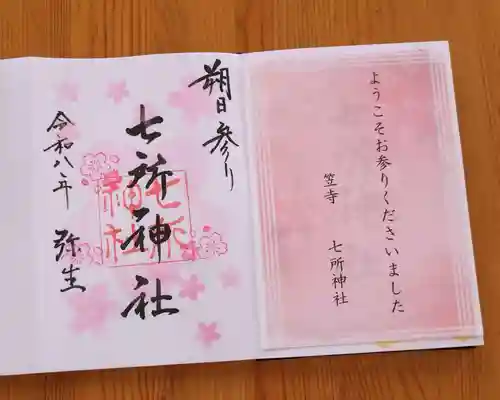 ようこそお参りくださいました
笠寺 七所神社
朔日参り
七所神社
令和八年 弥生